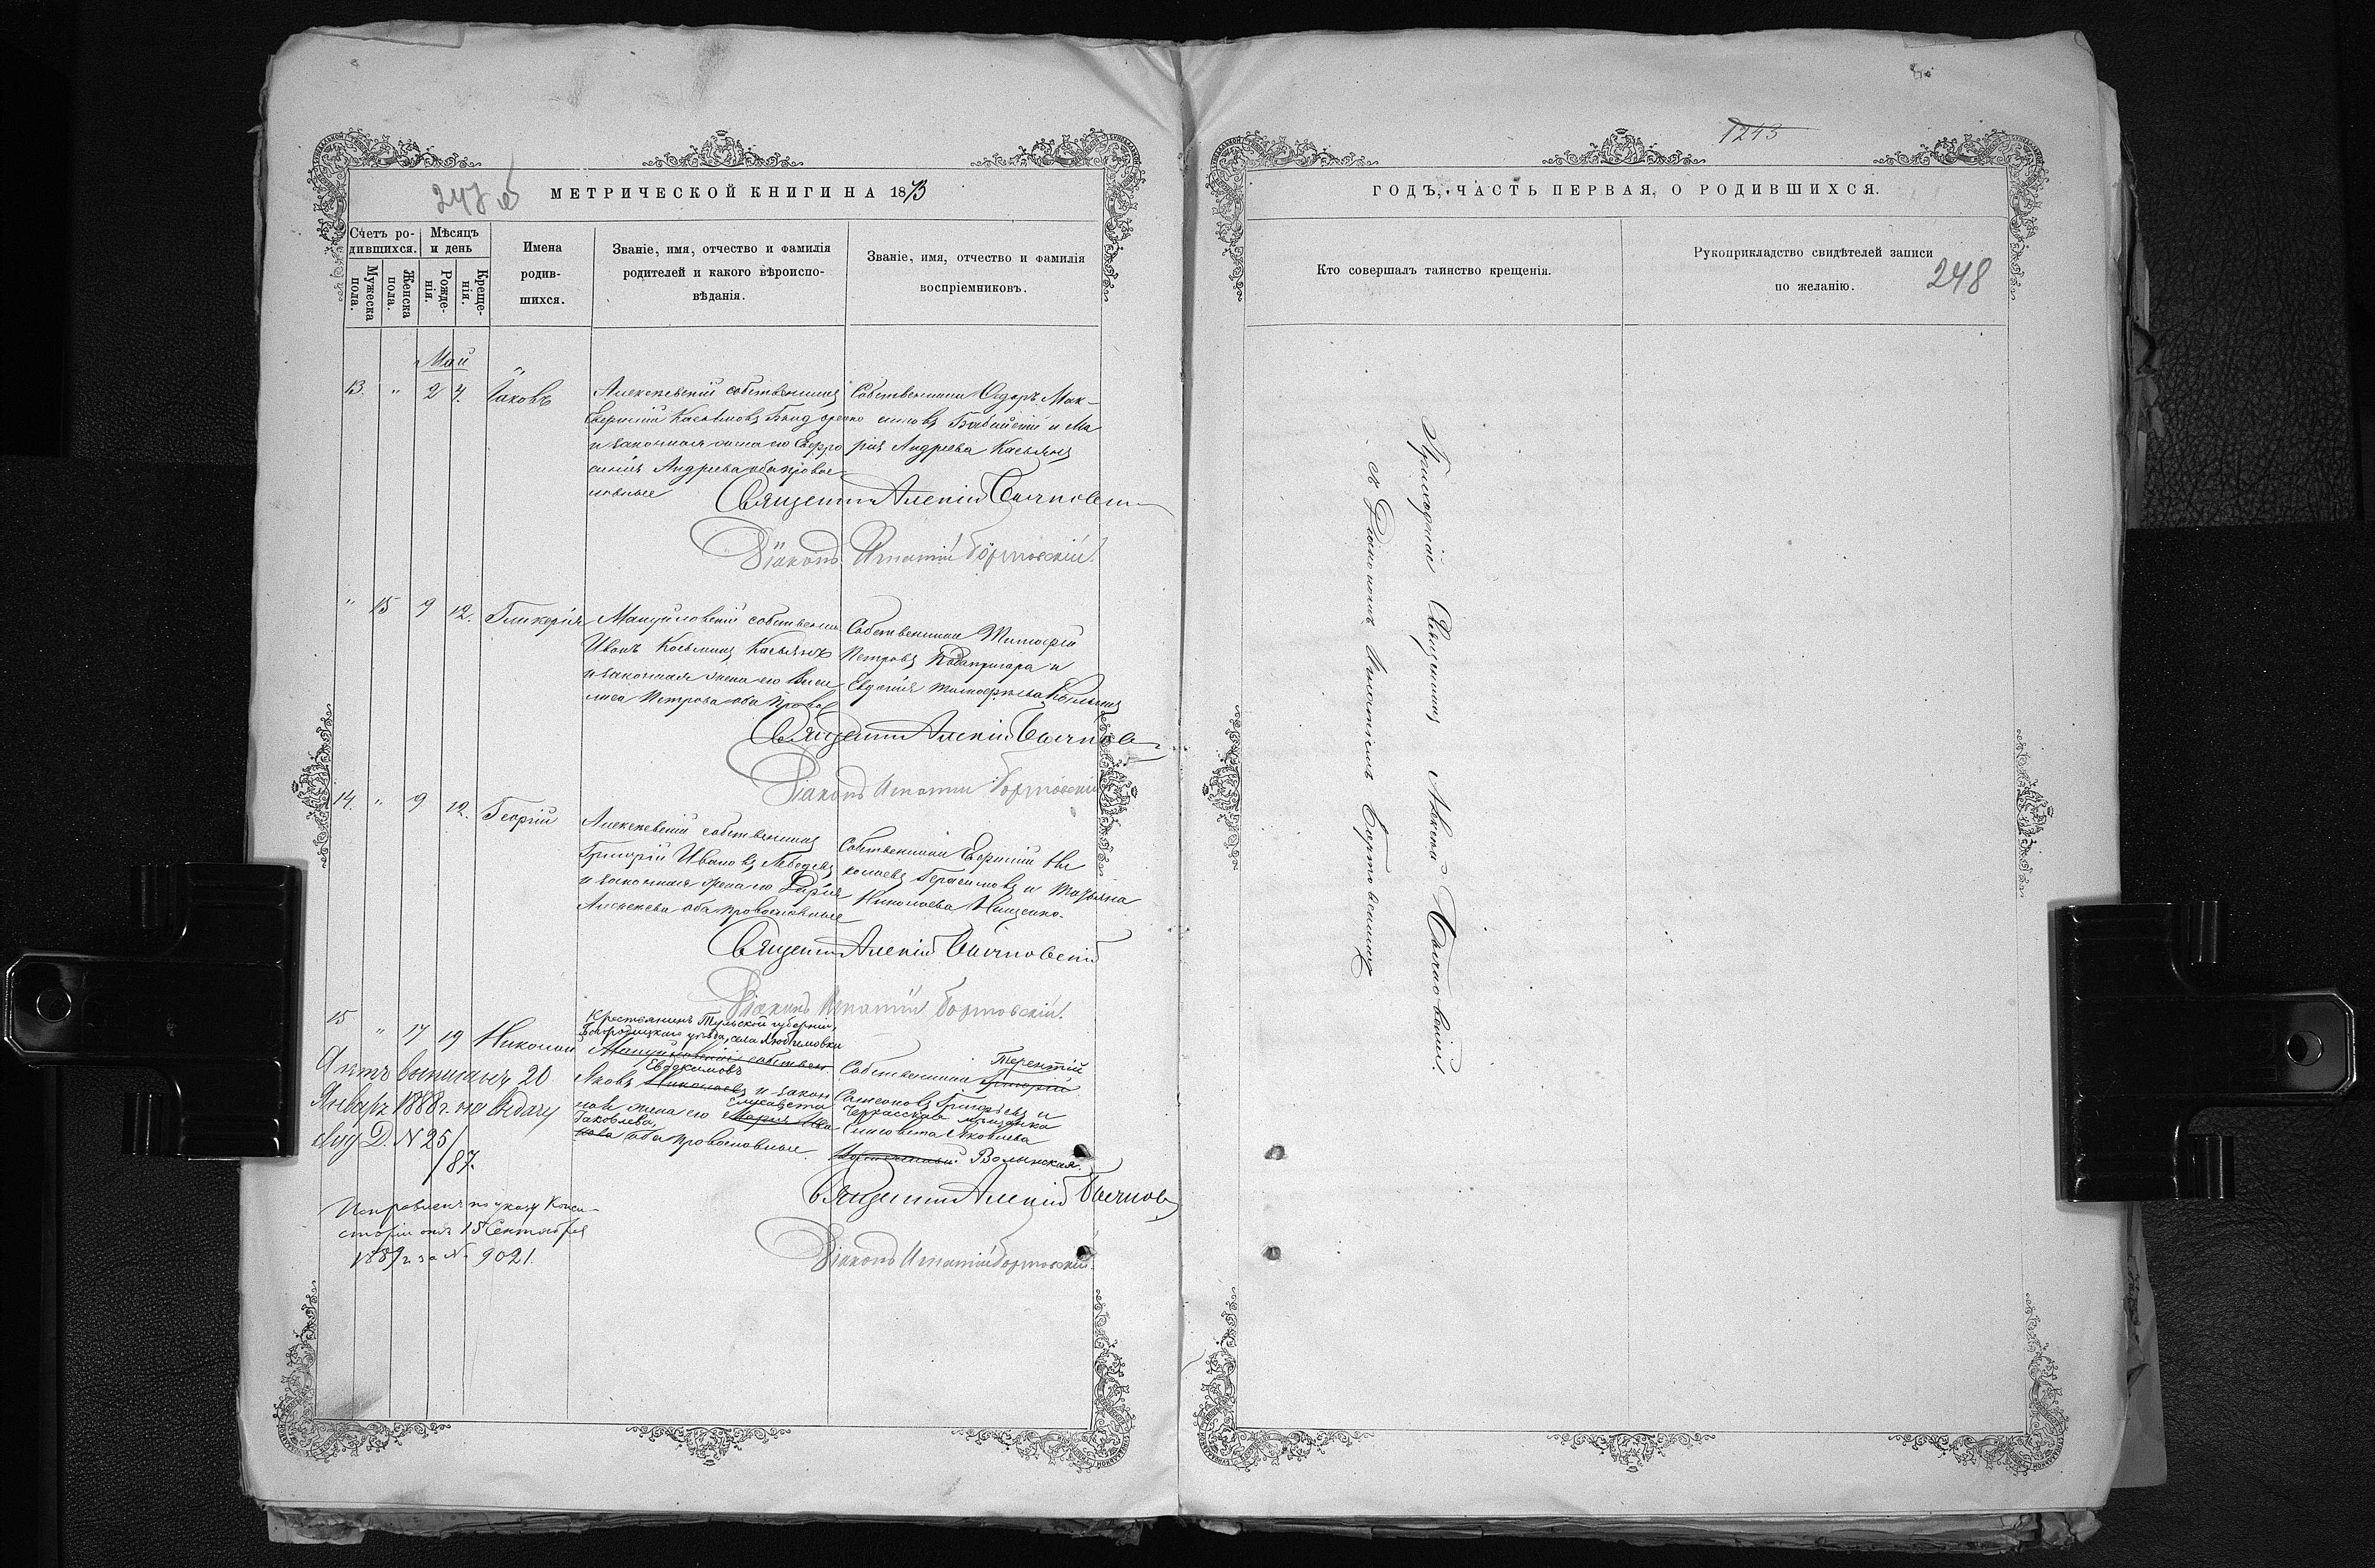 247 об
МЕТРИЧЕСКОЙ КНИГИ НА 1873
Счетъ ро-
дившихся.
Мѣсяцъ
и день
Мужеска
пола.
Женска
пола.
Рожде-
нія.
Креще-
нія.
Имена
родив-
шихся.
Званіе, имя, отчество и фамилія
родителей и какого вѣроиспо-
вѣданія.
Званіе, имя, отчество и фамилія
воспріемниковъ.
Май
13. " 2 4. Іаковъ
Алексѣевскій собственникъ
Касьяновъ Бондаренко
и законная жена его Евфро
синія Андреева оба правос-
лавные
Собственники Ѳедоръ Мак-
симовъ и Ма
рія Андреева Касьянъ
Священникъ Алексій
Діаконъ Игнатій Бортовскій.
" 15 9 12. Гликерія
Мануйловскій собственник
Иванъ Косьминъ Касьянъ
и законная жена его Васи
лиса Петрова оба право
Собственники Тимофей
Петровъ Подопригара и
Евдокія Тимофеева
Священникъ Алексій
Діаконъ Игнатій Бортовскій
14. " 9 12. Георгій
Алексѣевскій собственникъ
Григорій Ивановъ Лебедевъ
и законная жена его Дарія
Алексѣева оба православные
Собственники Евфимій Ни
колаевъ Герасимовъ и Татьяна
Николаева Нищенко.
Священникъ Алексій
Діаконъ Игнатій Бортовскій.
15 " 17 19 Николай
Крестьянинъ Тульской губерніи,
Богородицкаго уѣзда, села Любимовки
Мануйловскій собствен
Евдокимовъ
Яковъ Николаевъ и закон
Елисавета
ная жена его Марія Ива
Іаковлева,
нова оба православные.
Терентій
Собственники Григорій
Самсоновъ Григорьевъ и
Черкасская мѣщанка
Елисавета Яковлева
Волынская.
Священникъ Алексій
Діаконъ Игнатій Бортовскій.
Актъ выписанъ 20
Январь 1888 г. на выдачу
Суд. Д. № 25/
/87.
Исправлено по указу Конси-
сторіи отъ 15 Сентября
1889 г. за № 9021.
1243
ГОДЪ, ЧАСТЬ ПЕРВАЯ, О РОДИВШИХСЯ.
Кто совершалъ таинство крещенія.
Рукоприкладство свидѣтелей записи
по желанію.
248
Приходскій Священникъ Алексій
съ Діакономъ Игнатіемъ Бортовскимъ